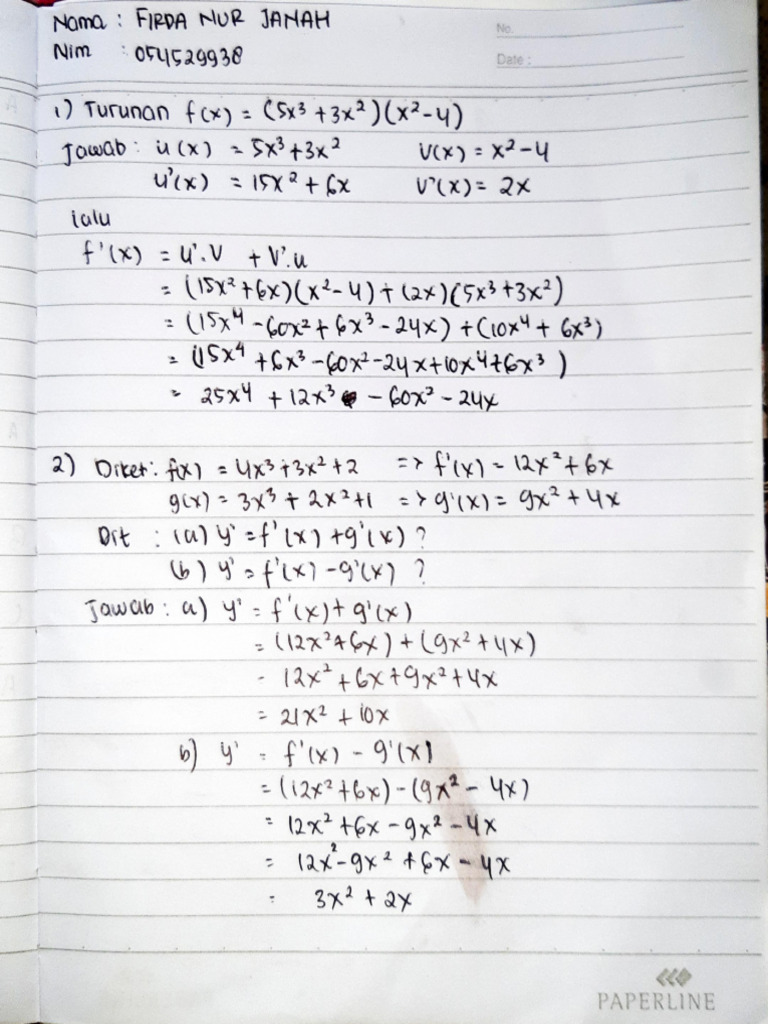 Nama : FIRDA NUR JANAH
No.
Nim : 054529938
Date :
1) Turunan f(x) = (5x³ + 3x²)(x² - 4)
Jawab : u(x) = 5x³ + 3x² V(x) = x² - 4
u'(x) = 15x² + 6x V'(x) = 2x
lalu
f'(x) = u'.V + V'.u
= (15x² + 6x)(x² - 4) + (2x)(5x³ + 3x²)
= (15x⁴ - 60x² + 6x³ - 24x) + (10x⁴ + 6x³)
= (15x⁴ + 6x³ - 60x² - 24x + 10x⁴ + 6x³)
= 25x⁴ + 12x³ - 60x² - 24x
2) Diket : f(x) = 4x³ + 3x² + 2 => f'(x) = 12x² + 6x
g(x) = 3x³ + 2x² + 1 => g'(x) = 9x² + 4x
Dit : (a) y' = f'(x) + g'(x) ?
(b) y' = f'(x) - g'(x) ?
Jawab : a) y' = f'(x) + g'(x)
= (12x² + 6x) + (9x² + 4x)
= 12x² + 6x + 9x² + 4x
= 21x² + 10x
b) y' = f'(x) - g'(x)
= (12x² + 6x) - (9x² - 4x)
= 12x² + 6x - 9x² - 4x
= 12x² - 9x² + 6x - 4x
= 3x² + 2x
PAPERLINE